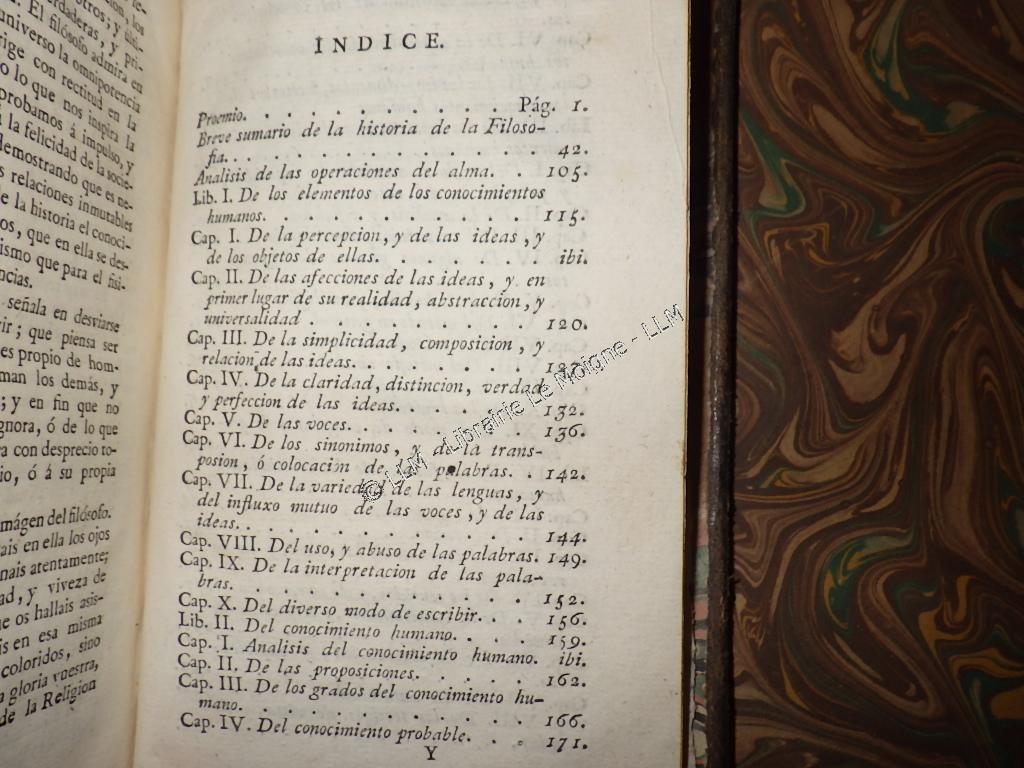 otros; y
verdaderas, y
. El filósofo admirá en
universo la omnipotencia
rige con rectitud en la
lo que nos inspira la
probamos á impulso, y
la felicidad de la socie-
demostrando que es ne-
s relaciones inmutables
de la historia el conoci-
os, que en ella se des-
ismo que para el fisi-
ncias.
señala en desviarse
ir; que piensa ser
es propio de hom-
man los demás, y
; y en fin que no
gnora, ó de lo que
a con desprecio to-
io, ó á su propia
mágen del filósofo.
ais en ella los ojos
nais atentamente;
ad, y viveza de
e os hallais asis-
is en esa misma
coloridos, sino
a gloria vuestra,
de la Religion
INDICE.
Proemio. . . . . . . . . Pág. 1.
Breve sumario de la historia de la Filoso-
fia. . . . . . . . . . . . . 42.
Analisis de las operaciones del alma. . 105.
Lib. I. De los elementos de los conocimientos
humanos. . . . . . . . . . . 115.
Cap. I. De la percepcion, y de las ideas, y
de los objetos de ellas. . . . . . . ibi.
Cap. II. De las afecciones de las ideas, y en
primer lugar de su realidad, abstraccion, y
universalidad . . . . . . . . . 120.
Cap. III. De la simplicidad, composicion, y
relacion de las ideas. . . . . . . 127.
Cap. IV. De la claridad, distincion, verdad,
y perfeccion de las ideas. . . . . . 132.
Cap. V. De las voces. . . . . . . . 136.
Cap. VI. De los sinonimos, y de la trans-
posion, ó colocacion de las palabras. . 142.
Cap. VII. De la variedad de las lenguas, y
del influxo mutuo de las voces, y de las
ideas. . . . . . . . . . . . 144.
Cap. VIII. Del uso, y abuso de las palabras. 149.
Cap. IX. De la interpretacion de las pala-
bras. . . . . . . . . . . . 152.
Cap. X. Del diverso modo de escribir. . . 156.
Lib. II. Del conocimiento humano. . . . 159.
Cap. I. Analisis del conocimiento humano. ibi.
Cap. II. De las proposiciones. . . . . . 162.
Cap. III. De los grados del conocimiento hu-
mano. . . . . . . . . . . . 166.
Cap. IV. Del conocimiento probable. . . . 171.
Y
© LLM - Librairie Le Moigne - LLM